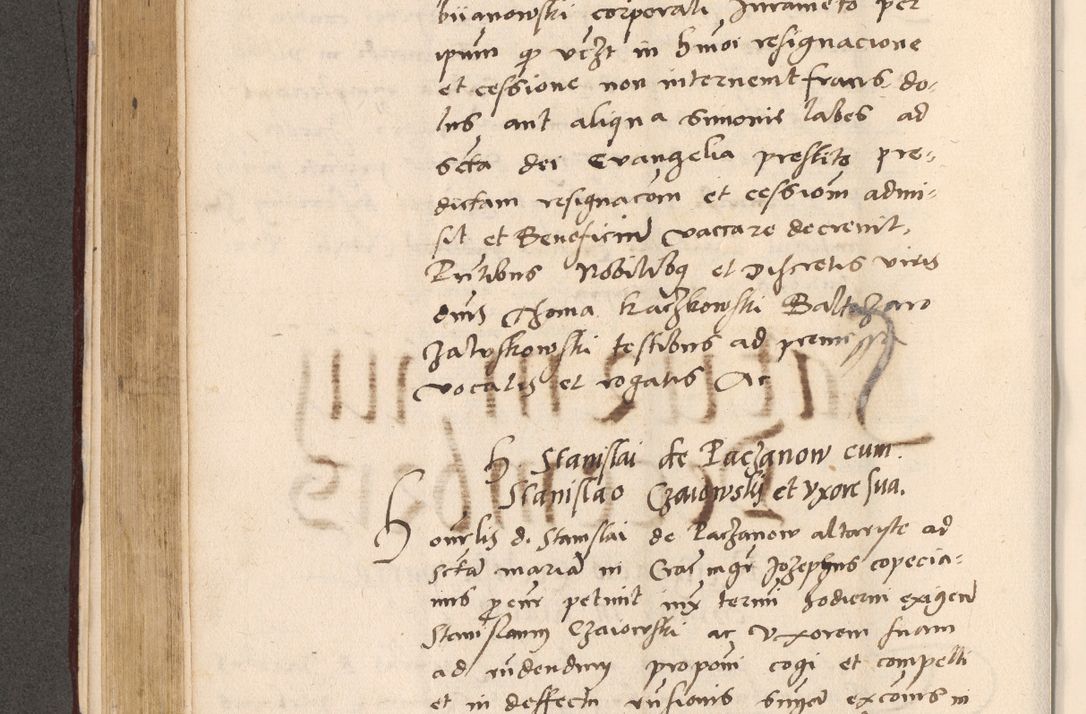 biianowski corporali Iurameto per
ipum q vt in hmoi resignacione
et cessione non interuenit fraus do-
lus aut aliqua simonie labes ad
scta dei Evangelia prestito pre-
dictam resignacom et cessiom admi-
sit et Beneficiu vaccare decreuit.
Pntibus Nobilibq et Discretis viris
dnis Thoma Kaczkowski Baltazaro
Zaluskowski testibus ad premissa
vocatis et rogatis Ac
h Stanislai de Paczanow cum
Stanislao Czaiowski et vxore sua.
Honrlis d. Stanislai de Paczanow altariste ad
sctam mariam in Crac mgr Jozephus copecia-
nus pcur petiuit iux termi hodierni exigen
Stanislaum Czaiowski ac vxorem suam
ad reddendum proponi cogi et compelli
et in deffectu excois in